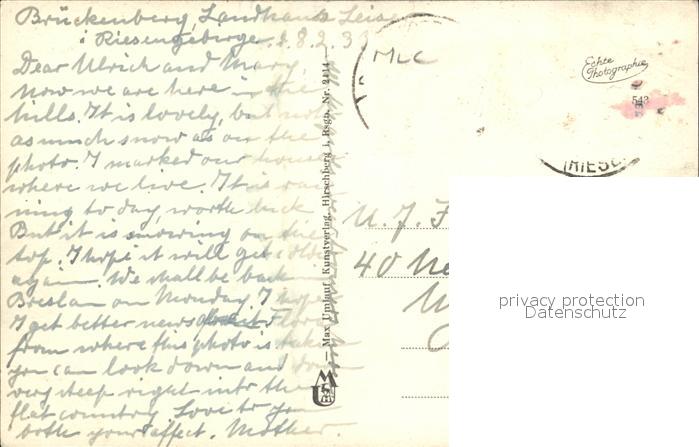 Brückenberg, Landhaus Leise
i Riesengebirge. 8.2.33
Dear Ulrich and Mary,
Now we are here in the
hills. It is lovely, but not
as much snow as on the
photo. I marked our house
where we live. It is rai-
ning to day, worth luck
But it is snowing on the
top. I hope it will get colder
again. We shall be back
Breslau on Monday. I hope
I get better news
from where this photo is taken
you can look down and down
very steep right into the
flat country. Love to you
both your affect. Mother.
Max Umlauf, Kunstverlag, Hirschberg i. Rsgb. Nr. 2414
MU
MLC
Echte
Photographie
543
(RIESG
U. J. F
40 Ne
privacy protection
Datenschutz